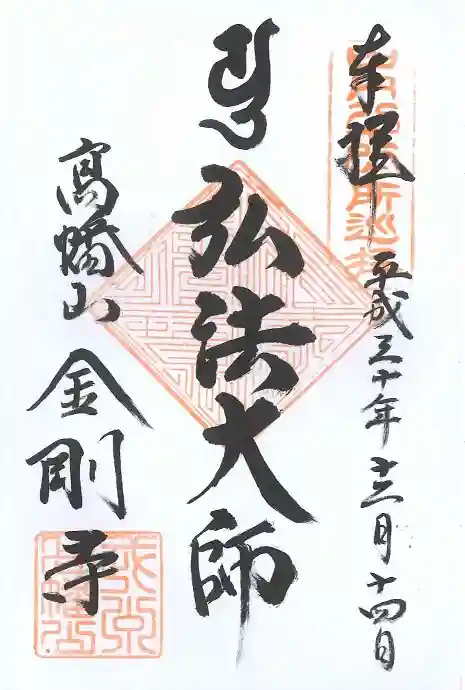 奉拝 平成三十年十二月十四日
弘法大師
髙幡山 金剛寺